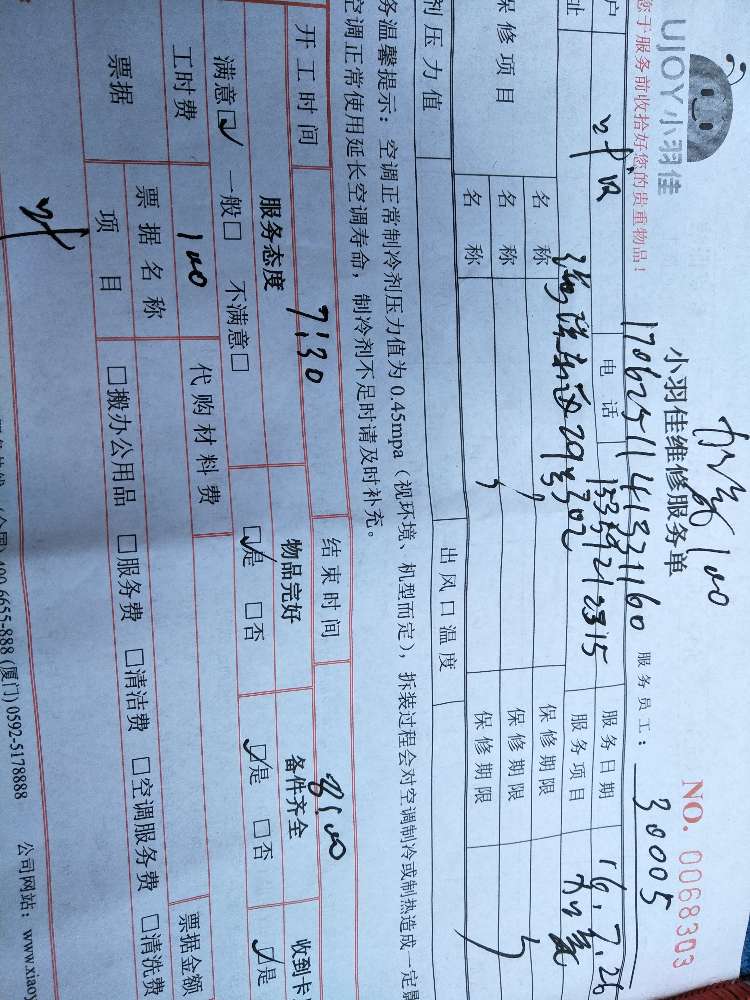 UJOY小羽佳
加氟100
小羽佳维修服务单
NO. 0068303
您于服务前收拾好您的贵重物品！
170625114131160
服务员工：
30005
户
叶
电话
服务日期
址
29号302
服务项目
加氟
保修项目
名称
保修期限
名称
保修期限
名称
保修期限
剂压力值
出风口温度
务温馨提示：空调正常制冷剂压力值为0.45mpa（视环境、机型而定），拆装过程会对空调制冷或制热造成一定
空调正常使用延长空调寿命，制冷剂不足时请及时补充。
开工时间
7:30
结束时间
8:00
服务态度
物品完好
备件齐全
收到卡
满意☑ 一般□ 不满意□
☑是 □否
☑是 □否
☑是
工时费
100
代购材料费
票据
票据名称
票据金额
项目
□搬办公用品 □服务费 □清洁费 □空调服务费 □清洗费
叶
(全国) 400 6655-888 (厦门) 0592-5178888
公司网站：www.xiaoy